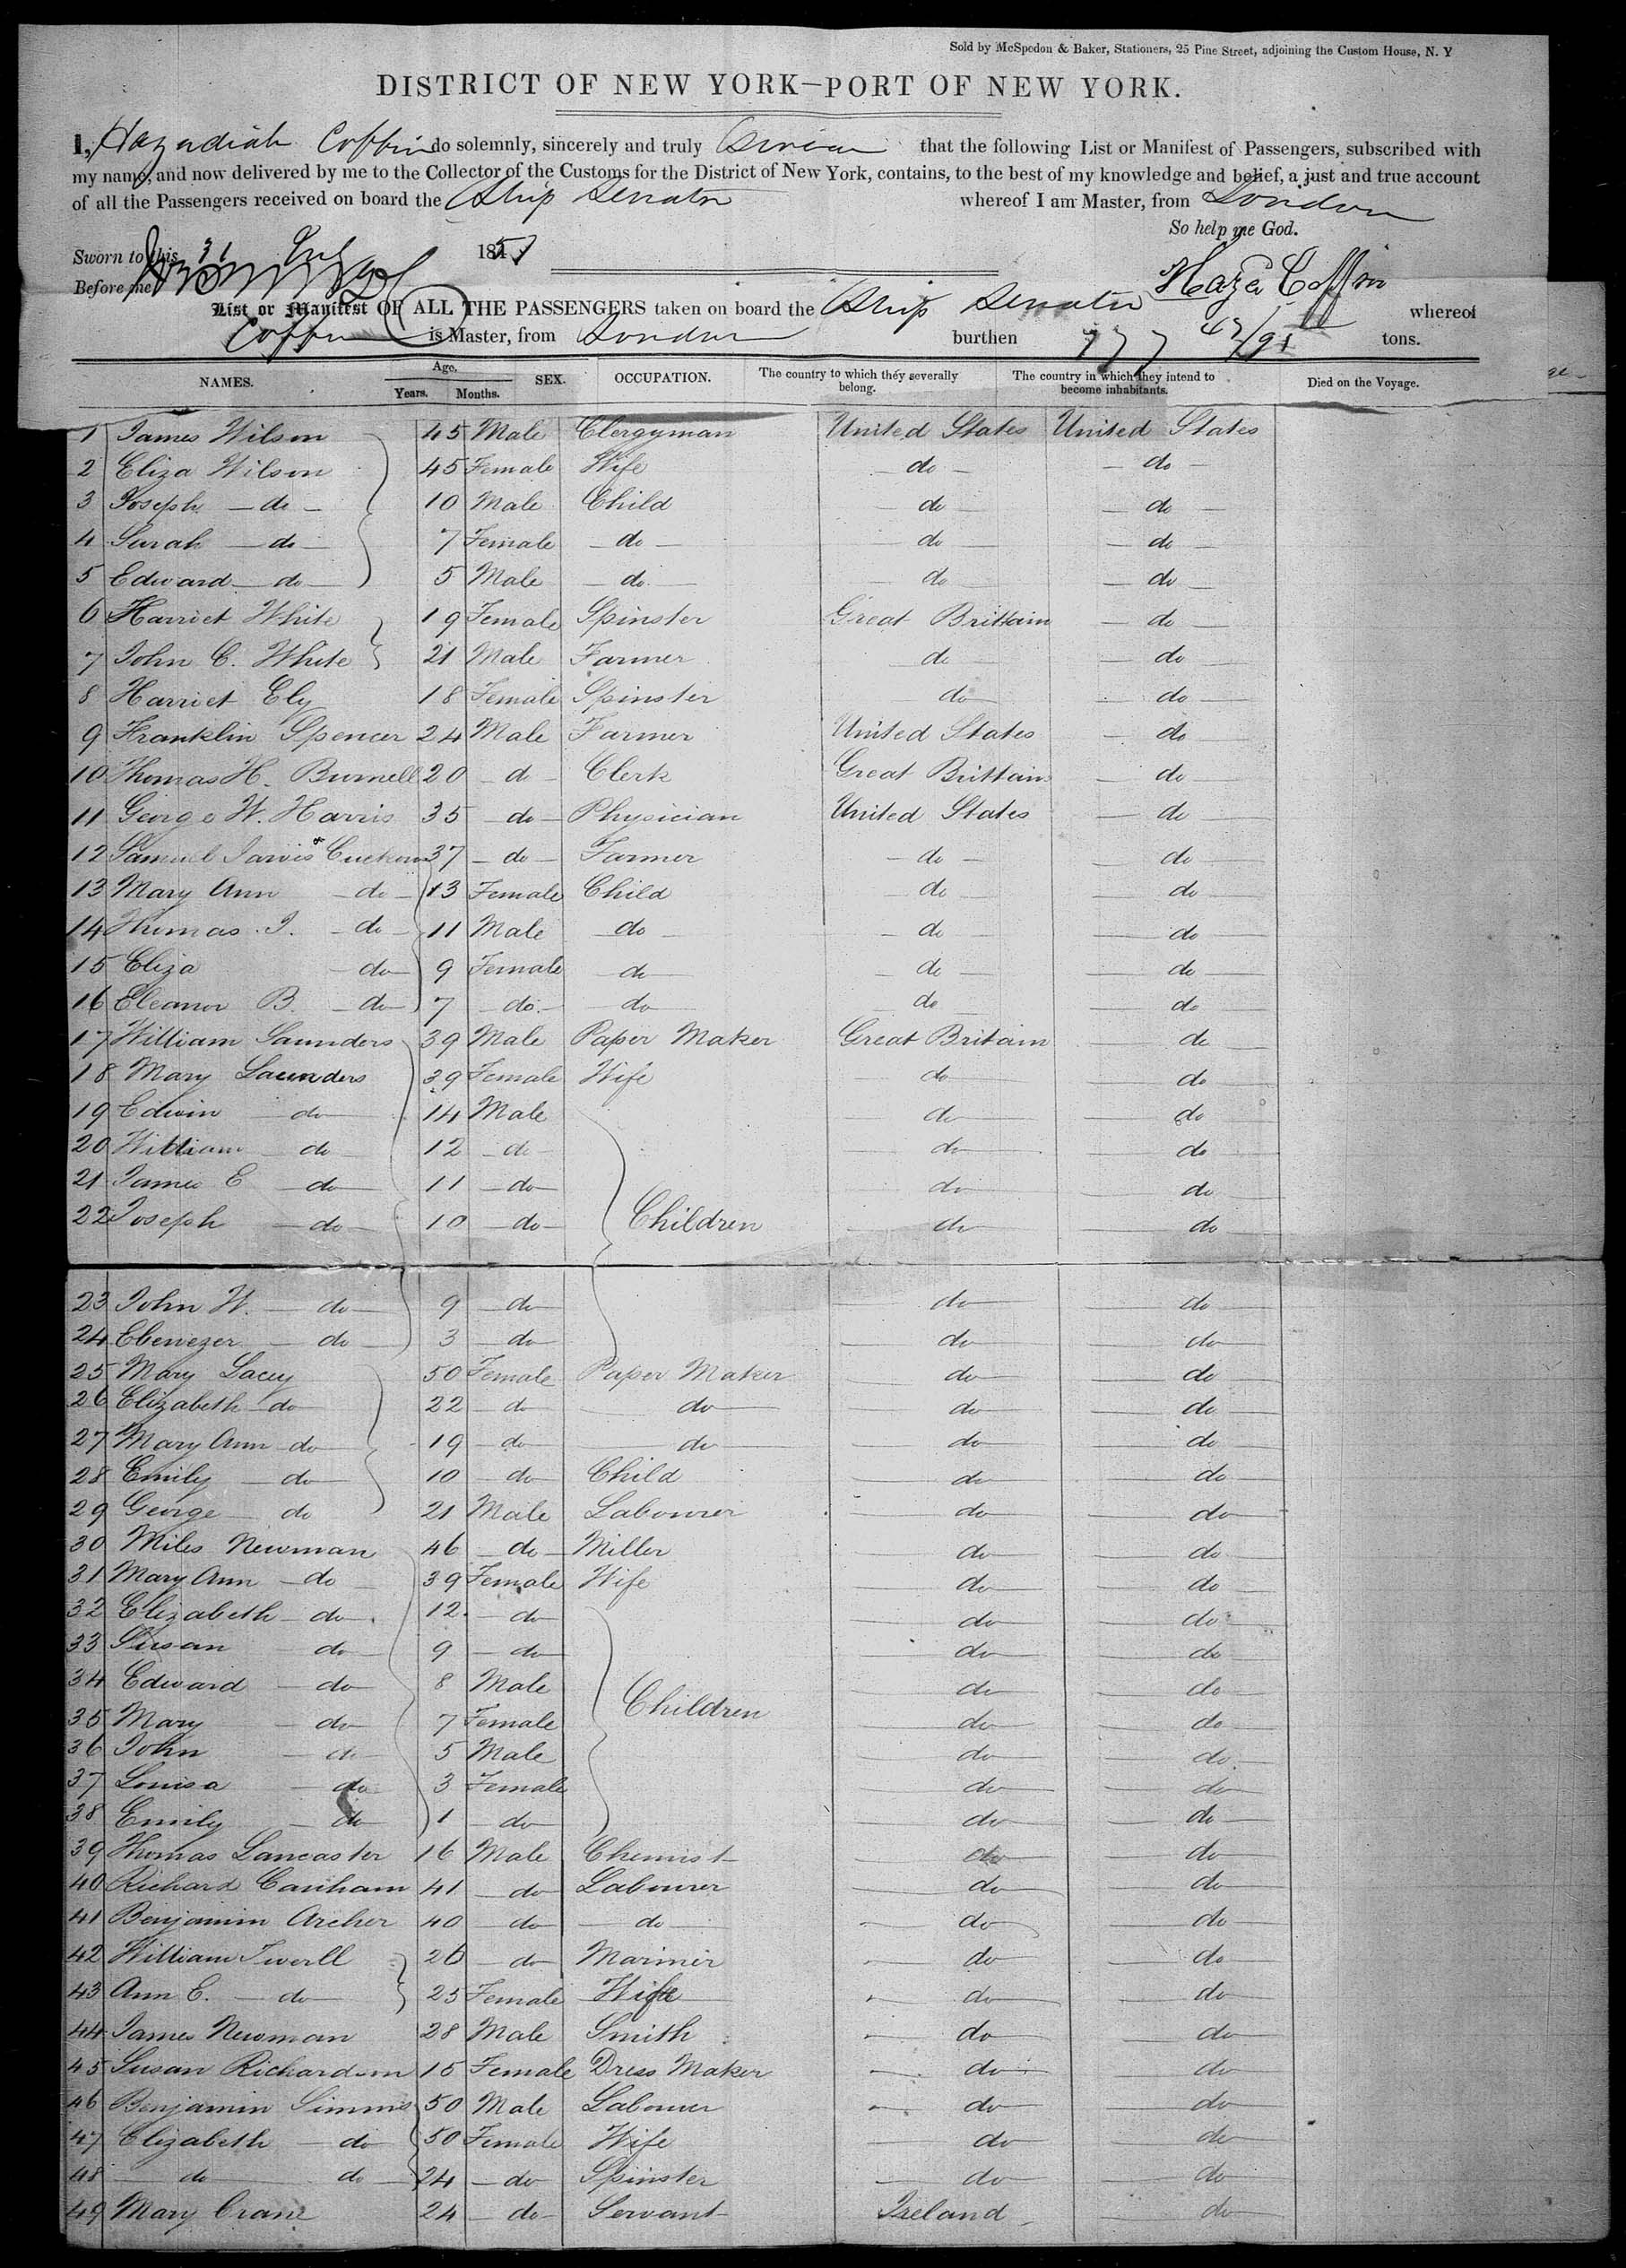 Sold by McSpedon & Baker, Stationers, 25 Pine Street, adjoining the Custom House, N. Y
DISTRICT OF NEW YORK—PORT OF NEW YORK.
I, Hazadiah Coffin do solemnly, sincerely and truly Swear that the following List or Manifest of Passengers, subscribed with
my name, and now delivered by me to the Collector of the Customs for the District of New York, contains, to the best of my knowledge and belief, a just and true account
of all the Passengers received on board the Ship Senator whereof I am Master, from London
So help me God.
Sworn to this 31 July 1851
Before me Haza Coffin
List or Manifest OF ALL THE PASSENGERS taken on board the Ship Senator whereof
Coffin is Master, from London burthen 777 47/95 tons.
NAMES. Age. Years. Months. SEX. OCCUPATION. The country to which they severally belong. The country in which they intend to become inhabitants. Died on the Voyage.
1 James Wilson 45 Male Clergyman United States United States
2 Eliza Wilson 45 Female Wife do do
3 Joseph do 10 Male Child do do
4 Sarah do 7 Female do do do
5 Edward do 5 Male do do do
6 Harriet White 19 Female Spinster Great Brittain do
7 John C. White 21 Male Farmer do do
8 Harriet Ely 18 Female Spinster do do
9 Franklin Spencer 24 Male Farmer United States do
10 Thomas H. Burnell 20 do Clerk Great Brittain do
11 George W. Harris 35 do Physician United States do
12 Samuel Jarvis Cuckow 37 do Farmer do do
13 Mary Ann do 13 Female Child do do
14 Thomas J. do 11 Male do do do
15 Eliza do 9 Female do do do
16 Eleanor B. do 7 do do do do
17 William Saunders 39 Male Paper Maker Great Britain do
18 Mary Saunders 39 Female Wife do do
19 Edwin do 14 Male do do
20 William do 12 do do do
21 James E do 11 do do do
22 Joseph do 10 do Children do do
23 John W. do 9 do do do
24 Ebenezer do 3 do do do
25 Mary Lacey 50 Female Paper Maker do do
26 Elizabeth do 22 do do do do
27 Mary Ann do 19 do do do do
28 Emily do 10 do Child do do
29 George do 21 Male Labourer do do
30 Miles Newman 46 do Miller do do
31 Mary Ann do 39 Female Wife do do
32 Elizabeth do 12 do do do
33 Susan do 9 do do do
34 Edward do 8 Male do do
35 Mary do 7 Female Children do do
36 John do 5 Male do do
37 Louisa do 3 Female do do
38 Emily do 1 do do do
39 Thomas Lancaster 16 Male Chemist do do
40 Richard Canham 41 do Labourer do do
41 Benjamin Archer 40 do do do do
42 William Twerll 26 do Mariner do do
43 Ann E. do 25 Female Wife do do
44 James Newman 28 Male Smith do do
45 Susan Richardson 15 Female Dress Maker do do
46 Benjamin Simms 50 Male Labourer do do
47 Elizabeth do 50 Female Wife do do
48 do do 24 do Spinster do do
49 Mary Crane 24 do Servant Ireland do